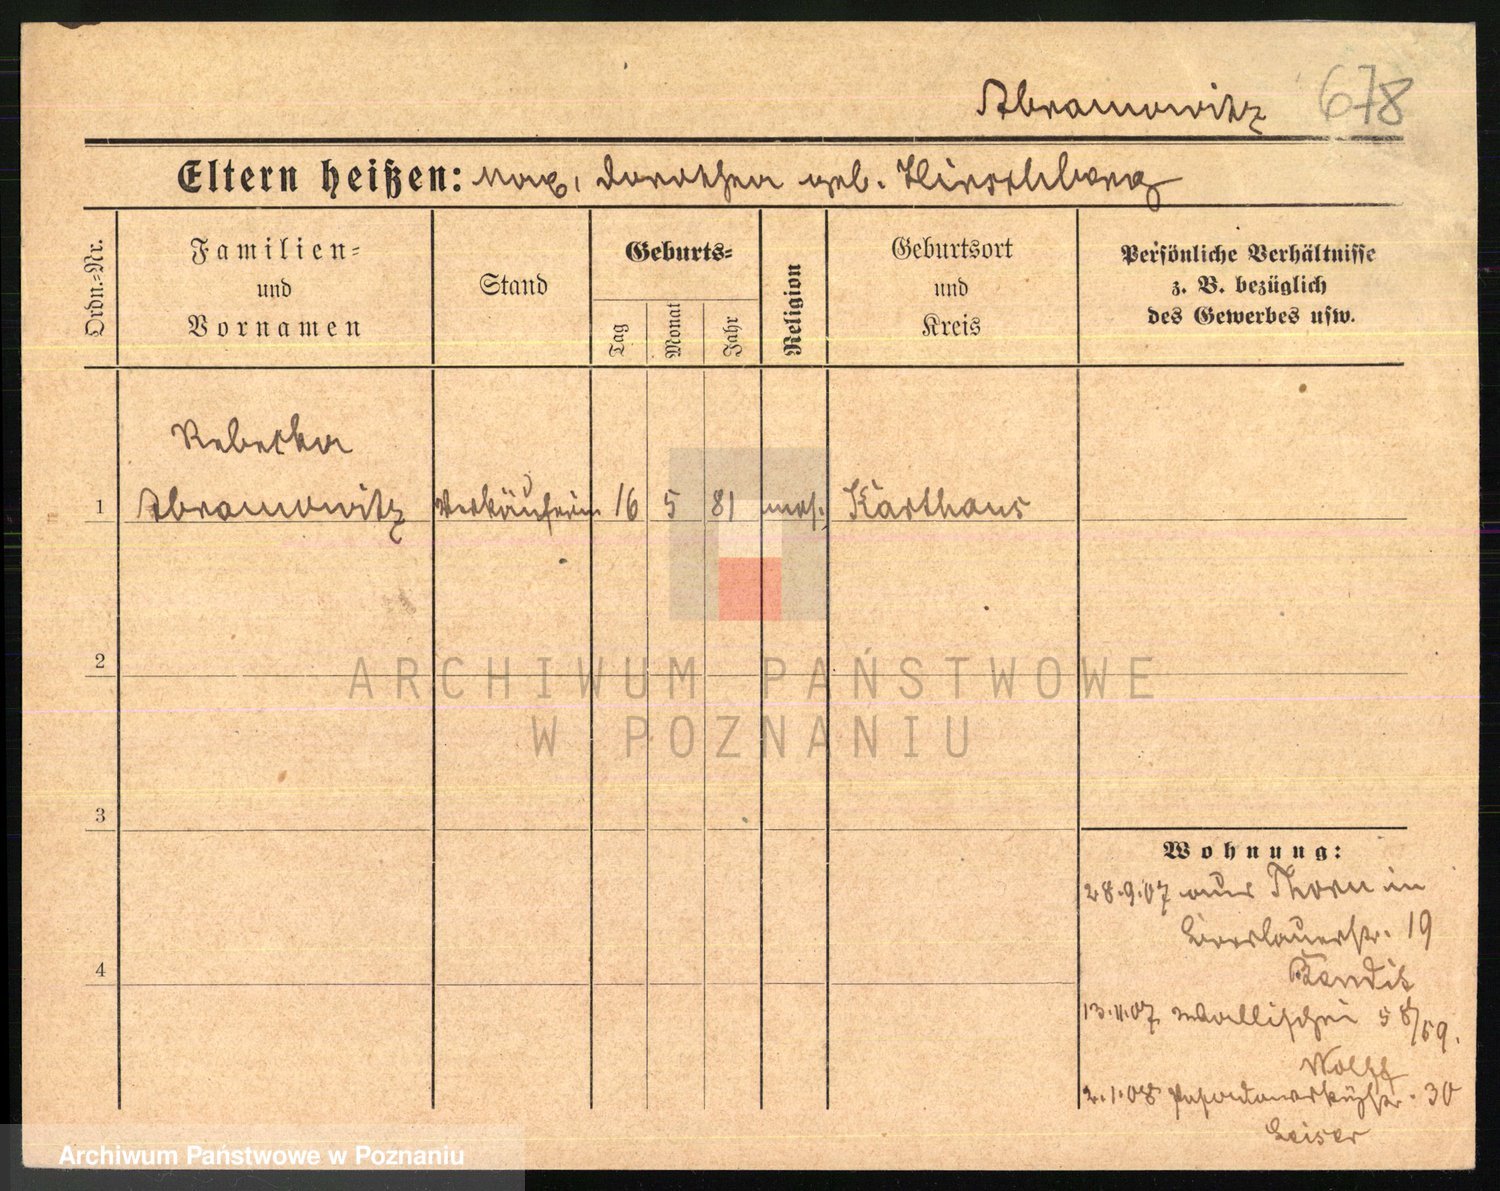 Abramowitz 678
Eltern heißen: Max, Dorothea geb. Hirschberg
Ordn.-Nr.
Familien-
und
Vornamen
Stand
Geburts-
Tag
Monat
Jahr
Religion
Geburtsort
und
Kreis
Persönliche Verhältnisse
z. B. bezüglich
des Gewerbes usw.
Rebecka
1 Abramowitz Verkäuferin 16 5 81 mos. Karthaus
2
ARCHIWUM PAŃSTWOWE
W POZNANIU
3
Wohnung:
28.9.07 aus Thorn in
Breslauerstr. 19
4
Bendik
13.11.07 Wallischei 58/59.
Wolff
2.1.08 30
Leiser
Archiwum Państwowe w Poznaniu